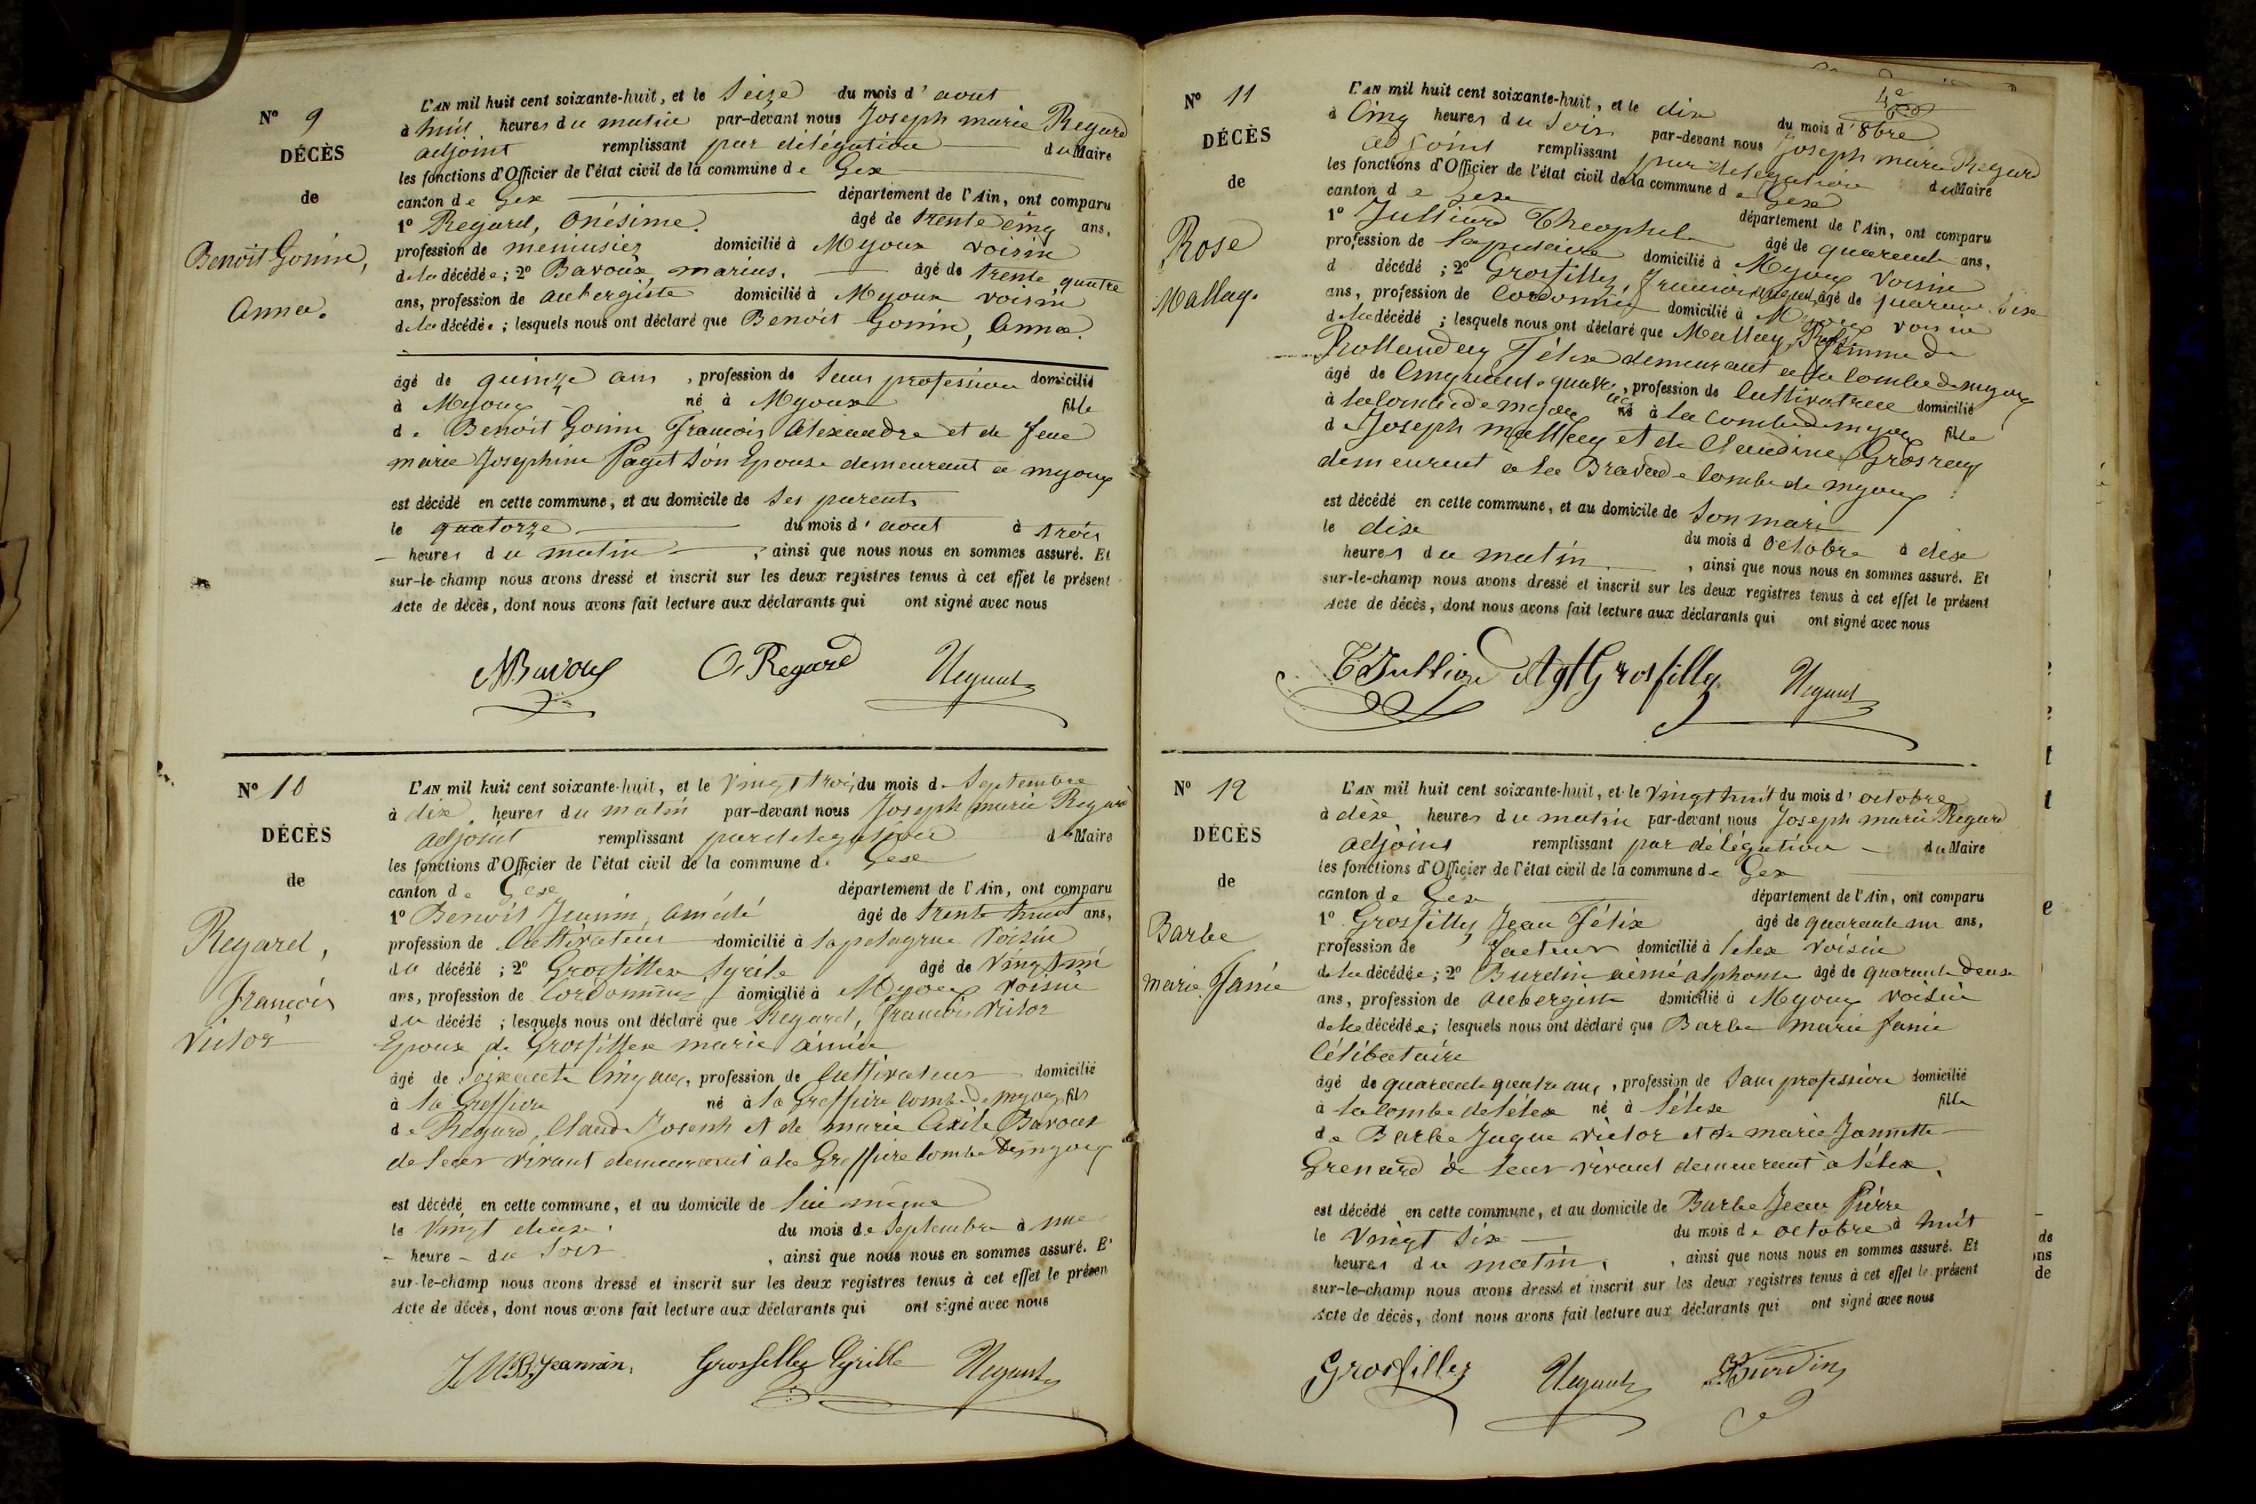 Nº 9
DÉCÈS
de
Benoit Gonin,
Anna.
L'AN mil huit cent soixante-huit, et le Seize du mois d' aout
à huit heures du matin par-devant nous Joseph marie Regard
adjoint remplissant par délégation du Maire
les fonctions d'Officier de l'état civil de la commune de Gex
canton de Gex département de l'Ain, ont comparu
1º Regard, Onésime. âgé de trente cinq ans,
profession de menuisier domicilié à Myoux voisin
de la décédée; 2º Bavoux marius. âgé de trente quatre
ans, profession de aubergiste domicilié à Myoux voisin
de la décédée; lesquels nous ont déclaré que Benoit Gonin, Anna.
âgé de quinze ans, profession de Sans profession domicilié
à Myoux né à Myoux fille
de Benoit Gonin François Alexandre et de feue
marie Josephine Paget Son Epouse demeurant a myoux
est décédé en cette commune, et au domicile de Ses parents
le quatorze du mois d' aout à trois
heures du matin, ainsi que nous nous en sommes assuré. Et
sur-le-champ nous avons dressé et inscrit sur les deux registres tenus à cet effet le présent
Acte de décès, dont nous avons fait lecture aux déclarants qui ont signé avec nous
MBavoux O. Regard
Nº 10
DÉCÈS
de
Regard,
François
Victor
L'AN mil huit cent soixante-huit, et le Vingt trois du mois de Septembre
à dix heures du matin par-devant nous Joseph marie Regard
adjoint remplissant par delegation du Maire
les fonctions d'Officier de l'état civil de la commune de Gex
canton de Gex département de l'Ain, ont comparu
1º Benoit Jeanin, amédé âgé de trente huit ans,
profession de Cultivateur domicilié à la pelagrue Voisin
du décédé; 2º Grosfillex Syrile âgé de Vingt
ans, profession de Cordonnier domicilié à Myoux Voisin
du décédé; lesquels nous ont déclaré que Regard, françois Victor
Epoux de Grosfillex marie
âgé de Soixante Cinq ans, profession de Cultivateur domicilié
à la Greffiere né à la Greffiere Combe de myoux fils
de Regard, Claude Joseph et de marie Bavoux
de leur vivant demeurant a la Greffiere Combe De myoux
est décédé en cette commune, et au domicile de lui même
le Vingt deux. du mois de Septembre à une
heure du Soir, ainsi que nous nous en sommes assuré. Et
sur-le-champ nous avons dressé et inscrit sur les deux registres tenus à cet effet le présen
Acte de décès, dont nous avons fait lecture aux déclarants qui ont signé avec nous
Jeannin. Grosfillex Cyrille
Nº 11
DÉCÈS
de
Rose
Mallay.
L'AN mil huit cent soixante-huit, et le dix du mois d' 8bre
à Cinq heures du Soir par-devant nous Joseph marie Regard
adjoint remplissant par delegation du Maire
les fonctions d'Officier de l'état civil de la commune de Gex
canton de Gex département de l'Ain, ont comparu
1º Julliard Theophile âgé de quarente ans,
profession de lapidaire domicilié à Myoux Voisin
d décédé; 2º Grosfilley, francois âgé de quarante Six
ans, profession de Cordonnier domicilié à Myoux voisin
de la décédé; lesquels nous ont déclaré que Mallay, Rose femme de
Rollandez Félix demeurant a la Combe de myoux
âgé de Cinquante quatre, profession de Cultivatrice domicilié
à la Combe de myoux né à la Combe de myoux fille
de Joseph mallay et de Claudine Grosrey
demeurent à la Combe de myoux
est décédé en cette commune, et au domicile de Son mari
le dix du mois d Octobre à dix
heures du matin, ainsi que nous nous en sommes assuré. Et
sur-le-champ nous avons dressé et inscrit sur les deux registres tenus à cet effet le présent
Acte de décès, dont nous avons fait lecture aux déclarants qui ont signé avec nous
TJulliard AgtGrosfilley
Nº 12
DÉCÈS
de
Barbe
marie fanie
L'AN mil huit cent soixante-huit, et le Vingt huit du mois d' octobre
à dix heures du matin par-devant nous Joseph marie Regard
adjoint remplissant par délégation du Maire
les fonctions d'Officier de l'état civil de la commune de Gex
canton de Gex département de l'Ain, ont comparu
1º Grosfilley Jean Félix âgé de quarante un ans,
profession de facteur domicilié à lélex voisin
de la décédée; 2º Burdin aimé alphonse âgé de quarante deux
ans, profession de aubergiste domicilié à Myoux voisin
de la décédée; lesquels nous ont déclaré que Barbe marie fanie
Célibataire
âgé de quarante quatre ans, profession de Sans profession domicilié
à la Combe de lélex né à lélex fille
de Barbe Jaque victor et de marie Jannette
Grenard de leur vivant demeurant à lélex.
est décédé en cette commune, et au domicile de Barbe Jean Pierre
le Vingt Six du mois de octobre à huit
heures du matin, ainsi que nous nous en sommes assuré. Et
sur-le-champ nous avons dressé et inscrit sur les deux registres tenus à cet effet le présent
Acte de décès, dont nous avons fait lecture aux déclarants qui ont signé avec nous
Grosfilley Burdin
de
ns
de